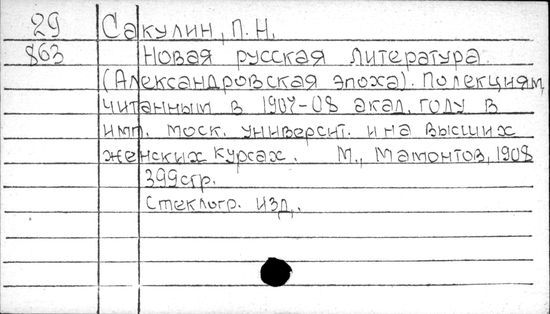 29 Сакулин, П. Н.
863 Новая русская литература.
(Александровская эпоха). По лекциям,
читанным в 1907-08 акад. году в
имп. моск. университ. и на высших
женских курсах. М., Мамонтов, 1908
399 стр.
Стеклогр. изд.